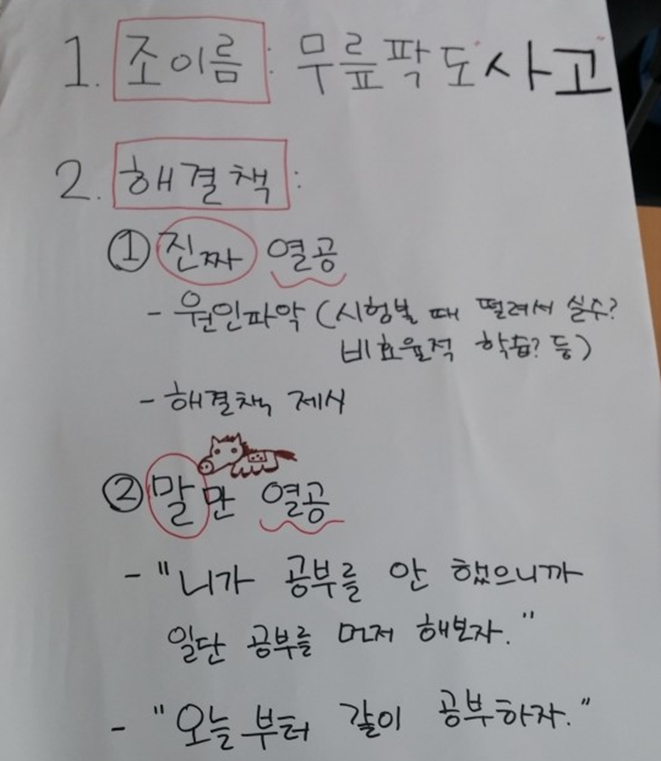 1. 조이름: 무릎팍도사고
2. 해결책:
① 진짜 열공
- 원인파악 (시험볼 때 떨려서 실수?
비효율적 학습? 등)
- 해결책 제시
② 말만 열공
- "니가 공부를 안 했으니까
일단 공부를 먼저 해보자."
- "오늘부터 같이 공부하자."